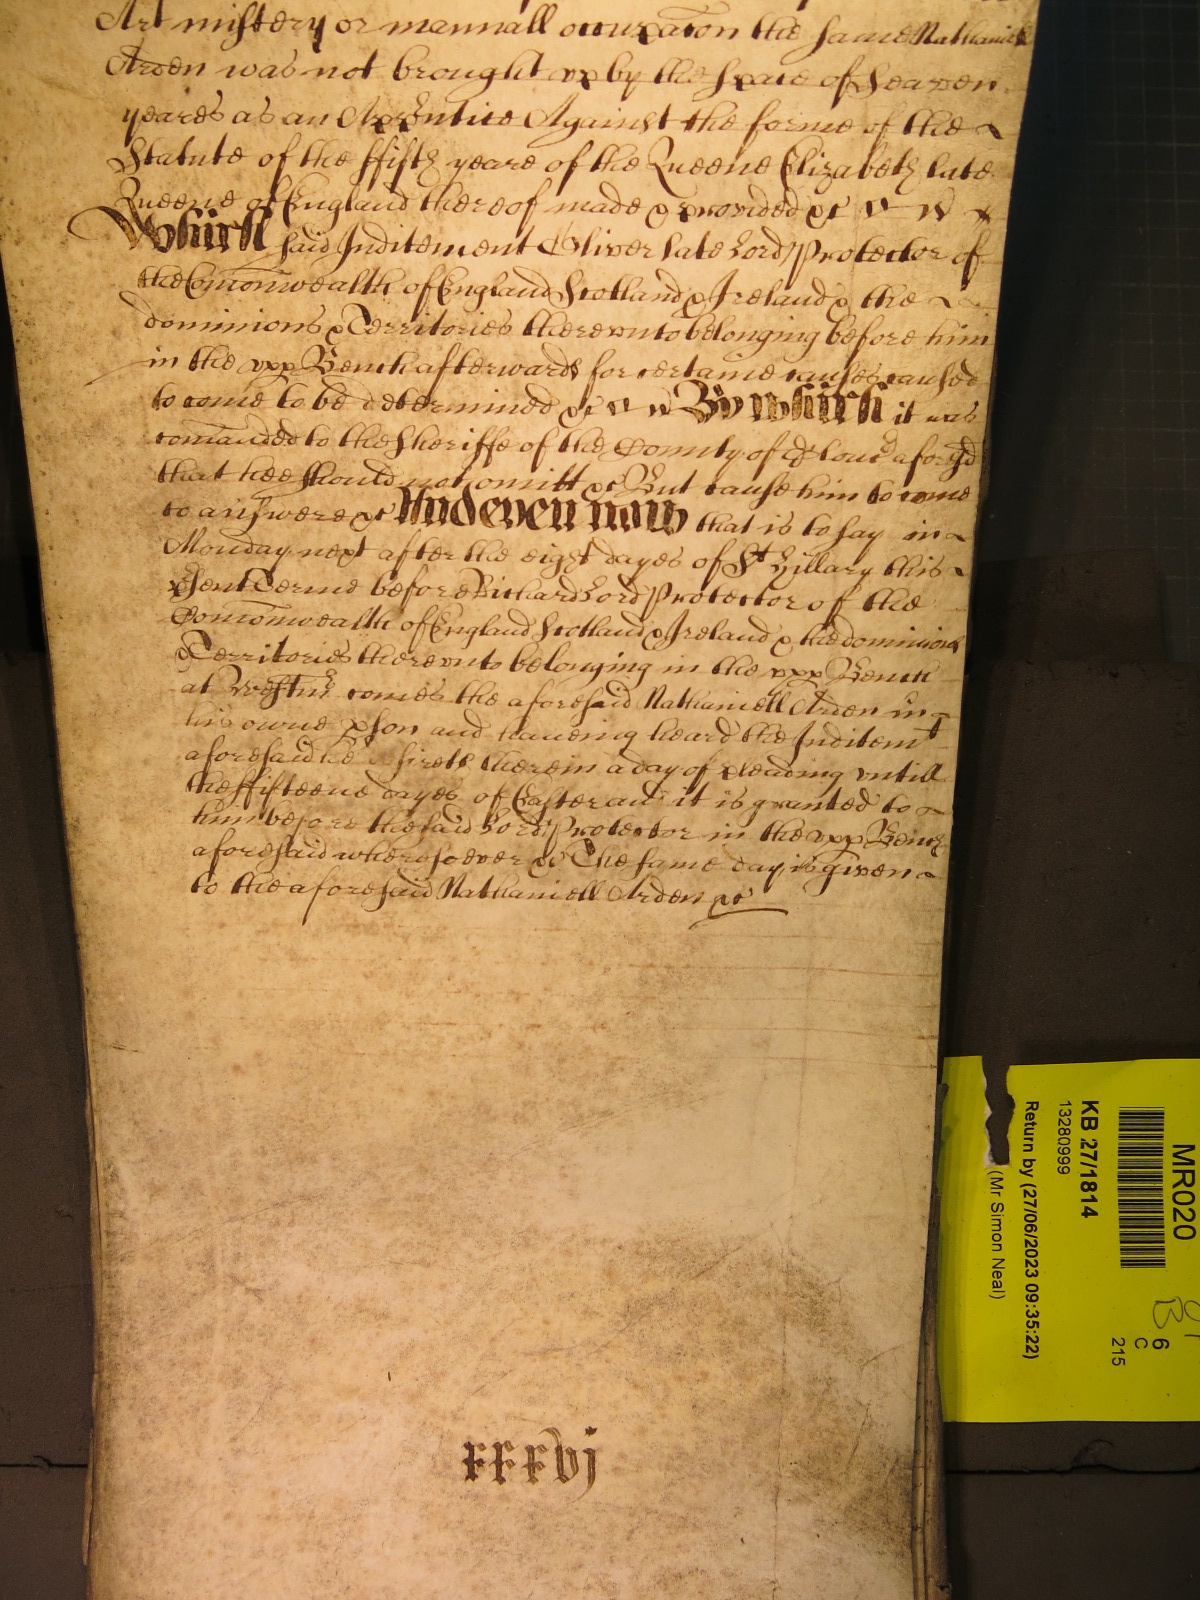 Art mistery or manuall occupac̃on the same Nathaniell
Arden was not brought vp by the space of Seaven
yeares as an Apprentice Against the forme of the
Statute of the ffifth yeare of the Queene Elizabeth late
Queene of England thereof made & provided &c
Which said Inditement Oliver late Lord Protector of
the Com̃onwealth of England Scotland & Ireland & the
dominions & Territories therevnto belonging before him
in the vpp Bench afterwards for certaine causes caused
to come to be determined &c By which it was
com̃anded to the Sheriffe of the County of Glouc aforesd
that hee should not omitt &c But cause him to come
to answere &c And even now that is to say in
Monday next after the eight dayes of St Hillary this
psent Terme before Richard Lord Protector of the
Com̃onwealth of England Scotland & Ireland & the dominions
& Territories therevnto belonging in the vpp Bench
at Westmr comes the aforesaid Nathaniell Arden in
his owne pson and haveing heard the Inditemt
aforesaid he desireth therein a day of pleading vntill
the ffifteene dayes of Easter and it is granted to
him before the said Lord Protector in the vpp Bench
aforesaid wheresoever &c The same day is given
to the aforesaid Nathaniell Arden &c
xxxvj
MR020
6
C
215
KB 27/1814
13280999
Return by (27/06/2023 09:35:22)
(Mr Simon Neal)